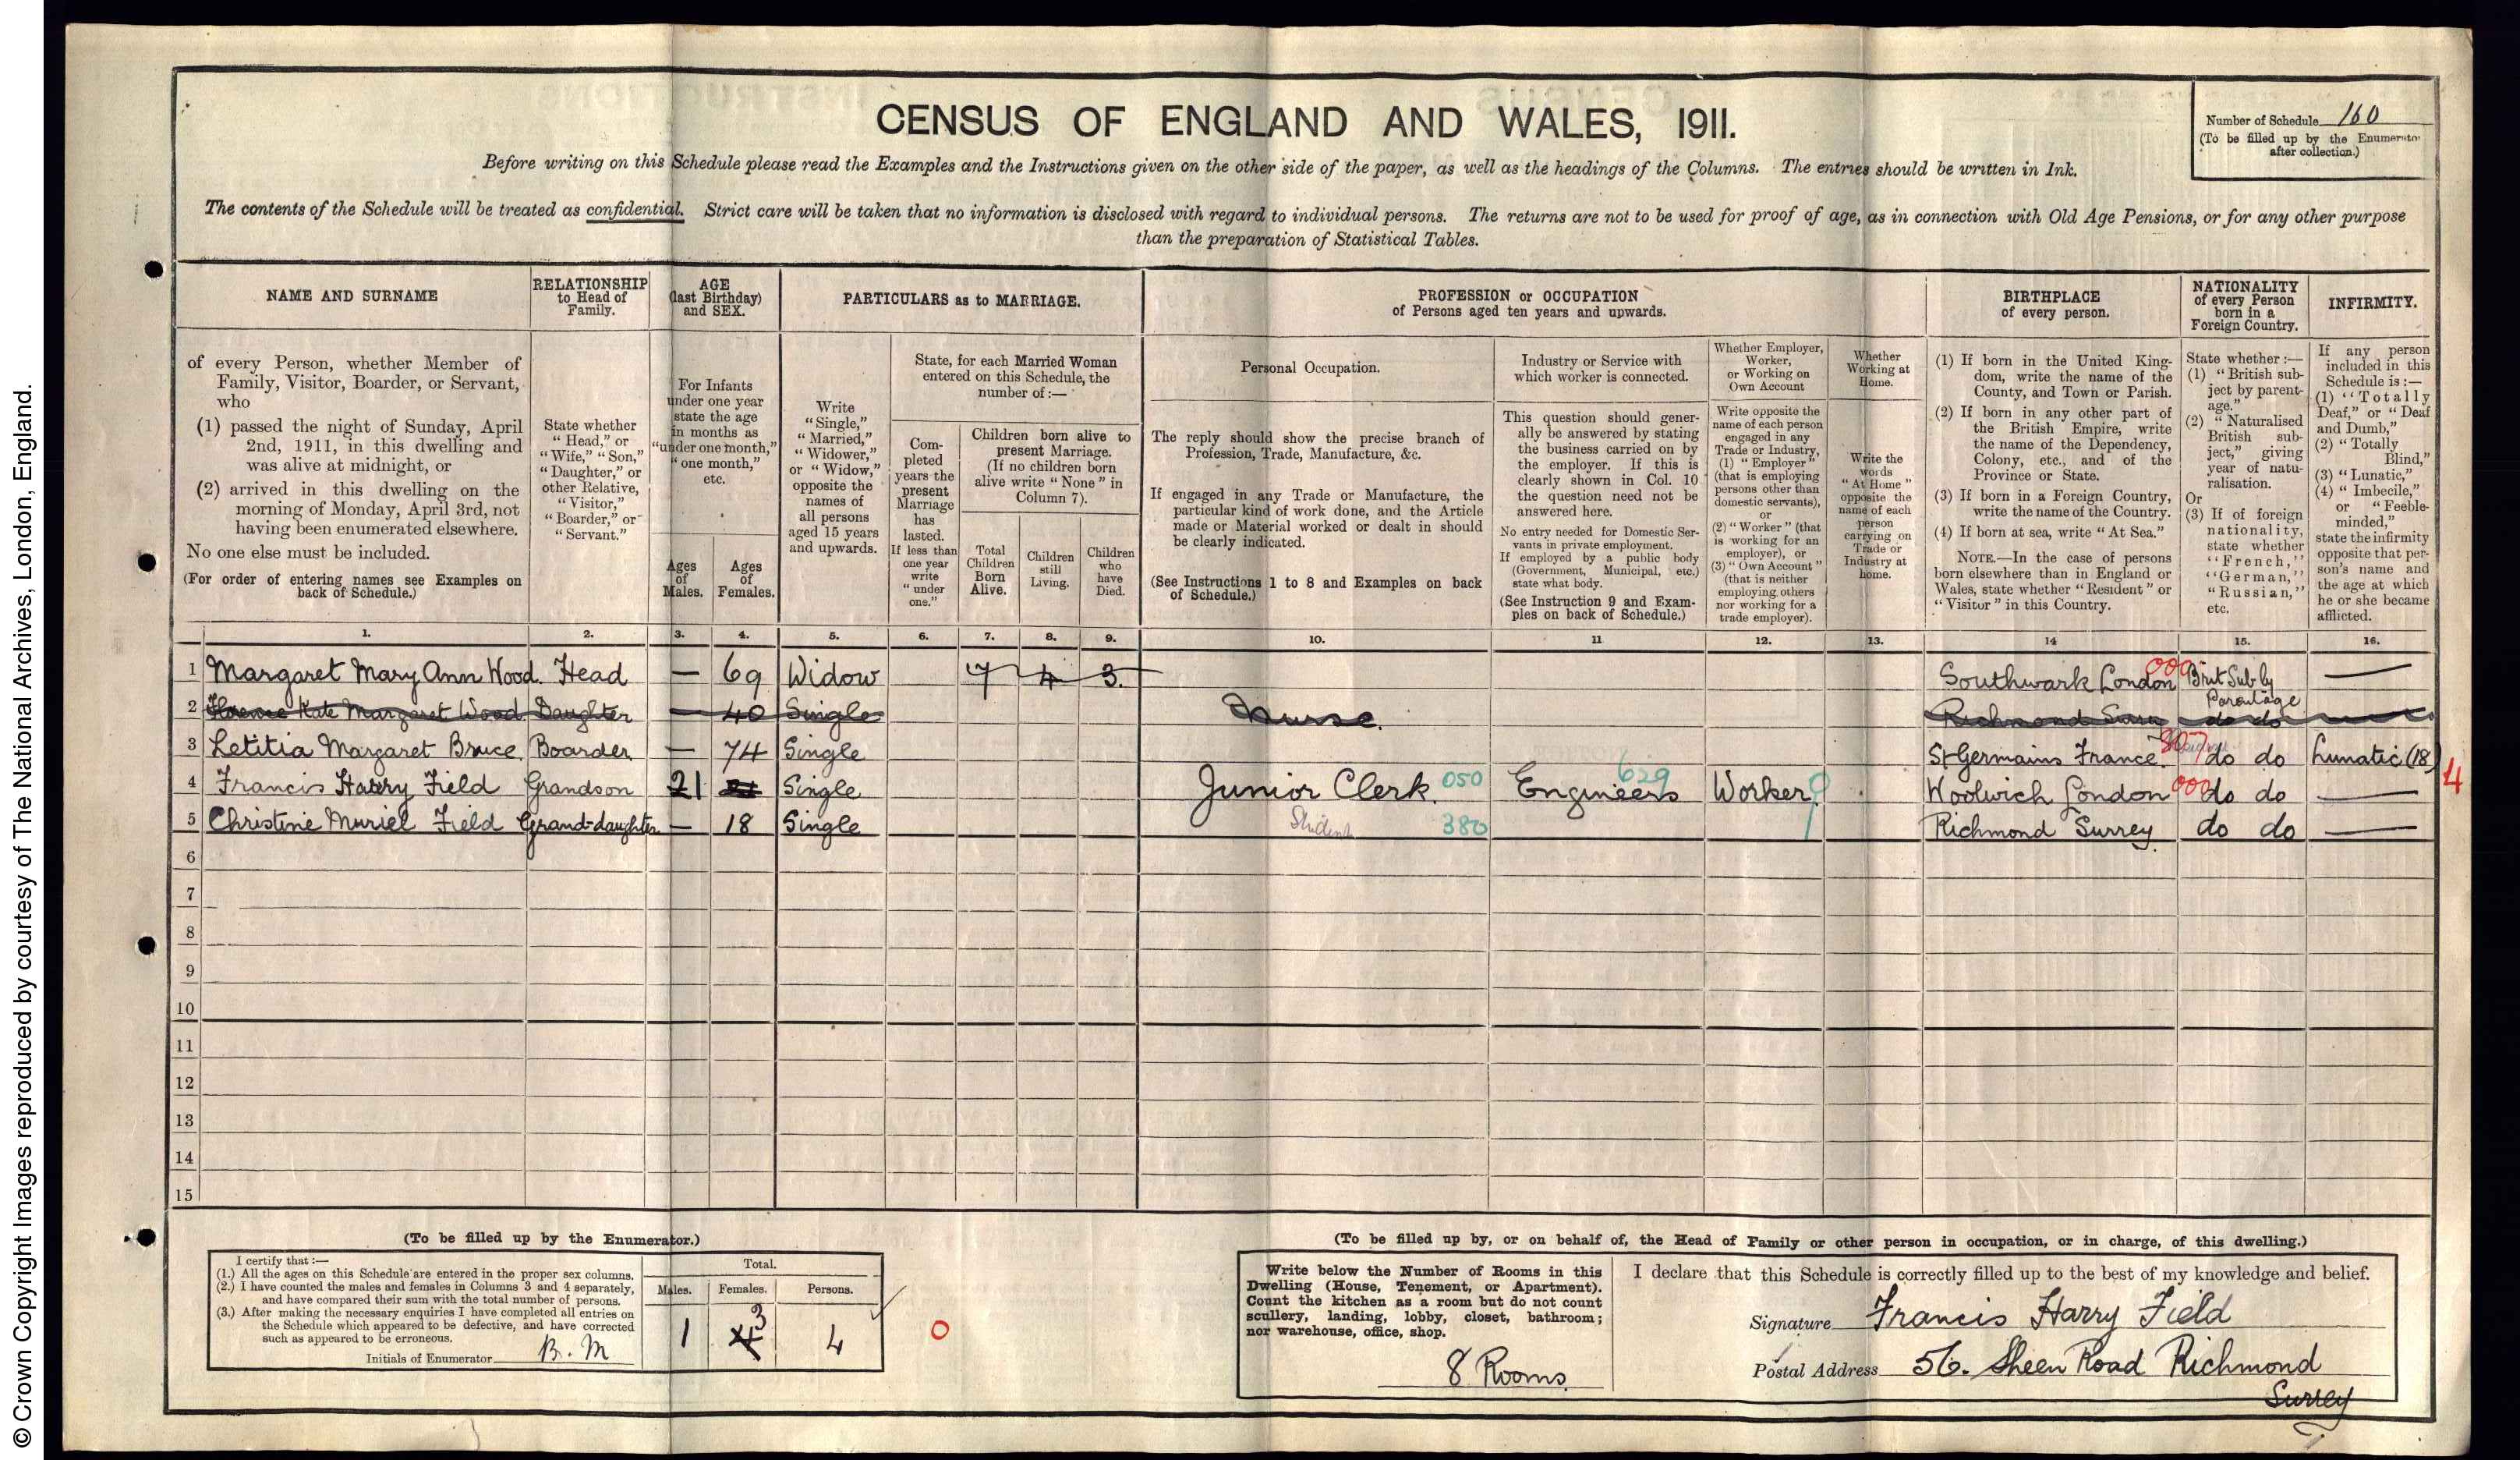 © Crown Copyright Images reproduced by courtesy of The National Archives, London, England.
CENSUS OF ENGLAND AND WALES, 1911.
Number of Schedule 160
(To be filled up by the Enumerator after collection.)
Before writing on this Schedule please read the Examples and the Instructions given on the other side of the paper, as well as the headings of the Columns. The entries should be written in Ink.
The contents of the Schedule will be treated as confidential. Strict care will be taken that no information is disclosed with regard to individual persons. The returns are not to be used for proof of age, as in connection with Old Age Pensions, or for any other purpose
than the preparation of Statistical Tables.
NAME AND SURNAME
of every Person, whether Member of
Family, Visitor, Boarder, or Servant,
who
(1) passed the night of Sunday, April
2nd, 1911, in this dwelling and
was alive at midnight, or
(2) arrived in this dwelling on the
morning of Monday, April 3rd, not
having been enumerated elsewhere.
No one else must be included.
(For order of entering names see Examples on
back of Schedule.)
RELATIONSHIP
to Head of
Family.
State whether
"Head," or
"Wife," "Son,"
"Daughter," or
other Relative,
"Visitor,"
"Boarder," or
"Servant."
AGE
(last Birthday)
and SEX.
For Infants
under one year
state the age
in months as
"under one month,"
"one month,"
etc.
Ages
of
Males.
Ages
of
Females.
PARTICULARS as to MARRIAGE.
Write
"Single,"
"Married,"
"Widower,"
or "Widow,"
opposite the
names of
all persons
aged 15 years
and upwards.
State, for each Married Woman
entered on this Schedule, the
number of:—
Com-
pleted
years the
present
Marriage
has
lasted.
If less than
one year
write
"under
one."
Children born alive to
present Marriage.
(If no children born
alive write "None" in
Column 7).
Total
Children
Born
Alive.
Children
still
Living.
Children
who
have
Died.
PROFESSION or OCCUPATION
of Persons aged ten years and upwards.
Personal Occupation.
The reply should show the precise branch of
Profession, Trade, Manufacture, &c.
If engaged in any Trade or Manufacture, the
particular kind of work done, and the Article
made or Material worked or dealt in should
be clearly indicated.
(See Instructions 1 to 8 and Examples on back
of Schedule.)
Industry or Service with
which worker is connected.
This question should gener-
ally be answered by stating
the business carried on by
the employer. If this is
clearly shown in Col. 10
the question need not be
answered here.
No entry needed for Domestic Ser-
vants in private employment.
If employed by a public body
(Government, Municipal, etc.)
state what body.
(See Instruction 9 and Exam-
ples on back of Schedule.)
Whether Employer,
Worker,
or Working on
Own Account
Write opposite the
name of each person
engaged in any
Trade or Industry,
(1) "Employer"
(that is employing
persons other than
domestic servants),
or
(2) "Worker" (that
is working for an
employer), or
(3) "Own Account"
(that is neither
employing others
nor working for a
trade employer).
Whether
Working at
Home.
Write the
words
"At Home"
opposite the
name of each
person
carrying on
Trade or
Industry at
home.
BIRTHPLACE
of every person.
(1) If born in the United King-
dom, write the name of the
County, and Town or Parish.
(2) If born in any other part of
the British Empire, write
the name of the Dependency,
Colony, etc., and of the
Province or State.
(3) If born in a Foreign Country,
write the name of the Country.
(4) If born at sea, write "At Sea."
NOTE.—In the case of persons
born elsewhere than in England or
Wales, state whether "Resident" or
"Visitor" in this Country.
NATIONALITY
of every Person
born in a
Foreign Country.
State whether:—
(1) "British sub-
ject by parent-
age."
(2) "Naturalised
British sub-
ject," giving
year of natu-
ralisation.
Or
(3) If of foreign
nationality,
state whether
"French,"
"German,"
"Russian,"
etc.
INFIRMITY.
If any person
included in this
Schedule is:—
(1) "Totally
Deaf," or "Deaf
and Dumb,"
(2) "Totally
Blind,"
(3) "Lunatic,"
(4) "Imbecile,"
or "Feeble-
minded,"
state the infirmity
opposite that per-
son's name and
the age at which
he or she became
afflicted.
1. 2. 3. 4. 5. 6. 7. 8. 9. 10. 11 12. 13. 14 15. 16.
1 Margaret Mary Ann Wood. Head — 69 Widow 7 4 3. Southwark London 009 Brit Sub by Parentage —
2 Florence Kate Margaret Wood Daughter — 40 Single Nurse. Richmond Surrey do do —
3 Letitia Margaret Bruce Boarder — 74 Single St Germains France. 307 do do Lunatic (18) 4
4 Francis Harry Field Grandson 21 21 Single Junior Clerk. 050 Engineers 629 Worker Woolwich London 000 do do —
5 Christine Muriel Field Grand-daughter — 18 Single Student 380 1 Richmond Surrey do do —
6
7
8
9
10
11
12
13
14
15
(To be filled up by the Enumerator.)
I certify that:—
(1.) All the ages on this Schedule are entered in the proper sex columns.
(2.) I have counted the males and females in Columns 3 and 4 separately,
and have compared their sum with the total number of persons.
(3.) After making the necessary enquiries I have completed all entries on
the Schedule which appeared to be defective, and have corrected
such as appeared to be erroneous.
Initials of Enumerator B. M
Total.
Males. Females. Persons.
1 4 3 4
0
(To be filled up by, or on behalf of, the Head of Family or other person in occupation, or in charge, of this dwelling.)
Write below the Number of Rooms in this
Dwelling (House, Tenement, or Apartment).
Count the kitchen as a room but do not count
scullery, landing, lobby, closet, bathroom;
nor warehouse, office, shop.
8 Rooms
I declare that this Schedule is correctly filled up to the best of my knowledge and belief.
Signature Francis Harry Field
Postal Address 56. Sheen Road Richmond
Surrey